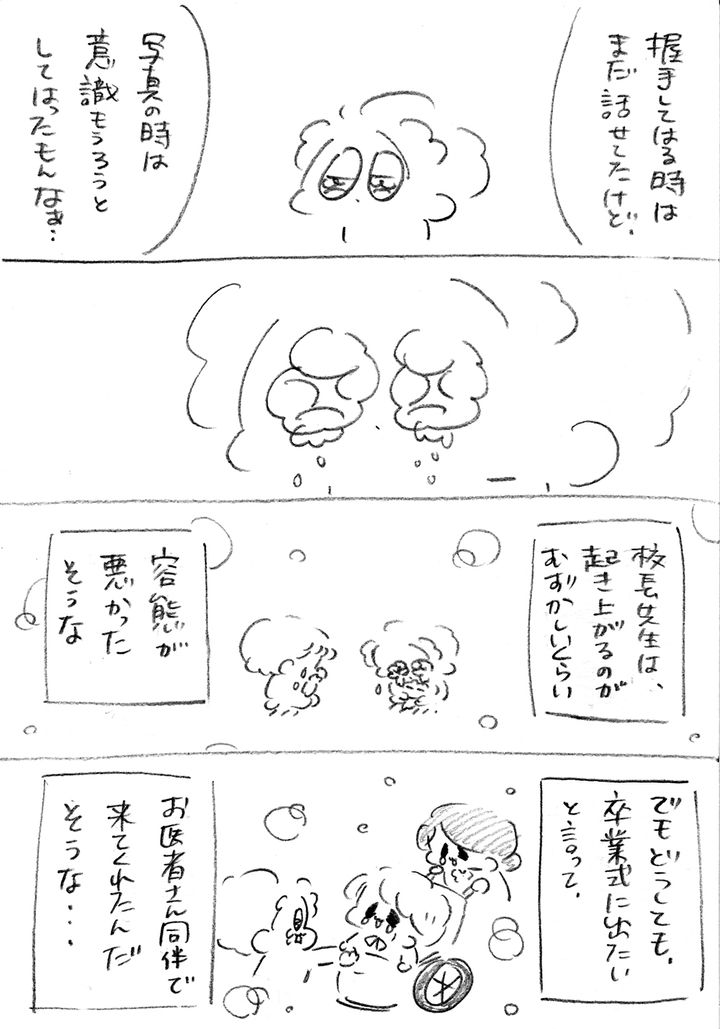 握手してはる時は
まだ話せてたけど、
写真の時は
意識もうろうと
してはったもんなぁ…
校長先生は、
起き上がるのが
むずかしいくらい
容態が
悪かった
そうな
でもどうしても、
卒業式に出たい
と言って、
お医者さん同伴で
来てくれたんだ
そうな・・・